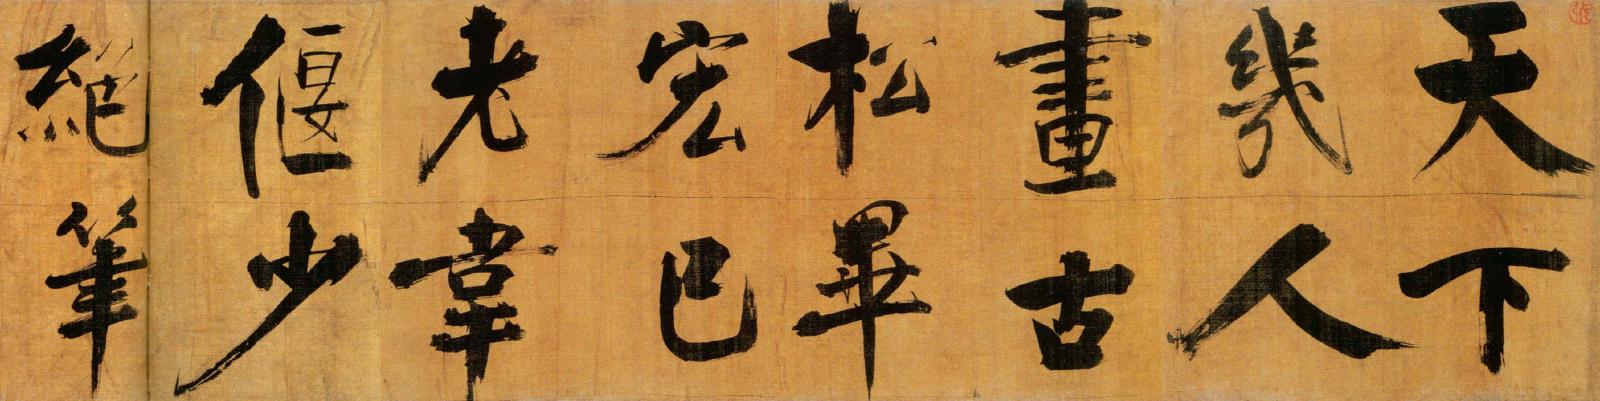 天下
幾人
畫古
松畢
宏已
老韋
偃少
絕筆